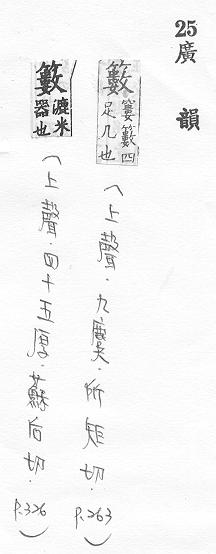 25 廣韻
籔 窶籔四足几也（上聲．九麌．所矩切．P.263）
籔 漉米器也（上聲．四十五厚．蘇后切．P.326）